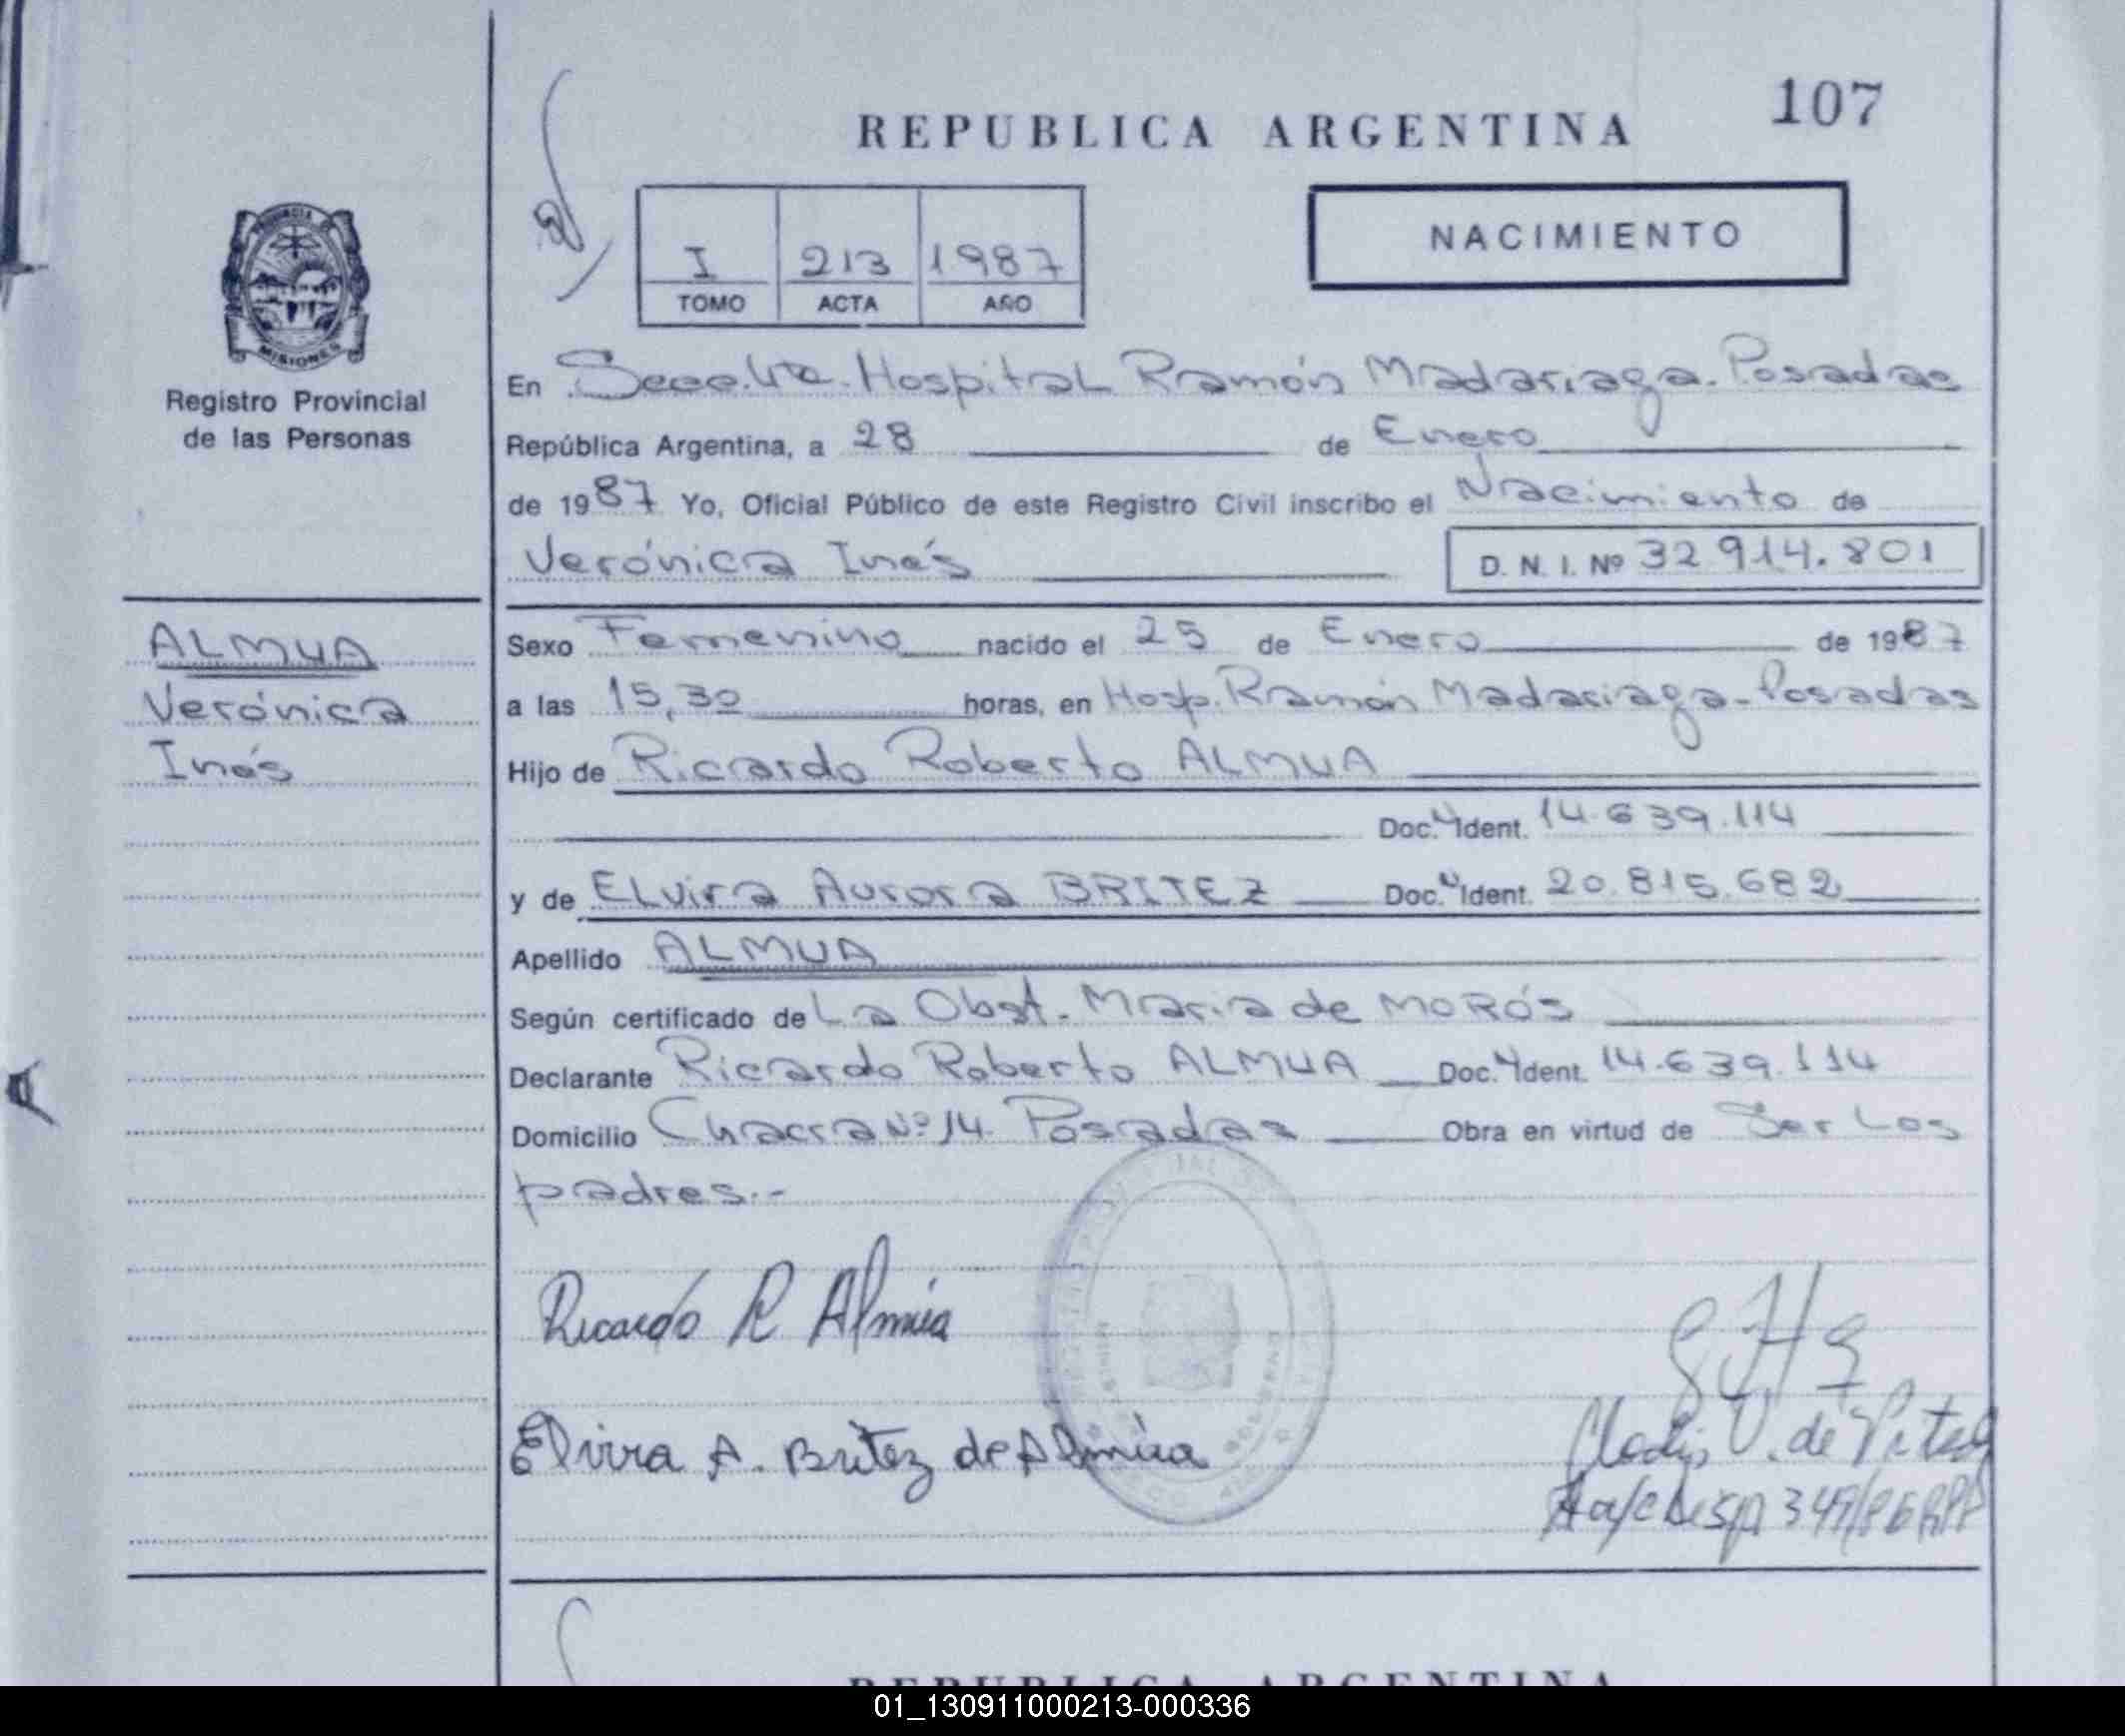 107
REPUBLICA ARGENTINA
NACIMIENTO
I 213 1987
TOMO ACTA AÑO
MISIONES
Registro Provincial
de las Personas
En Secc. 4ta. Hospital Ramón Madariaga. Posadas
República Argentina, a 28 de Enero
de 1987 Yo, Oficial Público de este Registro Civil inscribo el Nacimiento de
Verónica Inés D. N. I. Nº 32 914.801
ALMUA
Verónica
Inés
Sexo Femenino nacido el 25 de Enero de 1987
a las 15,30 horas, en Hosp. Ramón Madariaga - Posadas
Hijo de Ricardo Roberto ALMUA
Doc. Ident. 14.639.114
y de ELvira Aurora BRITEZ Doc. Ident. 20.815.682
Apellido ALMUA
Según certificado de La Obst. Maria de MORÓS
Declarante Ricardo Roberto ALMUA Doc. Ident. 14.639.114
Domicilio Chacra Nº 14. Posadas Obra en virtud de Ser Los
padres.-
Ricardo R Almúa
Elvira A. Britez de Almúa
REPUBLICA ARGENTINA
01_130911000213-000336